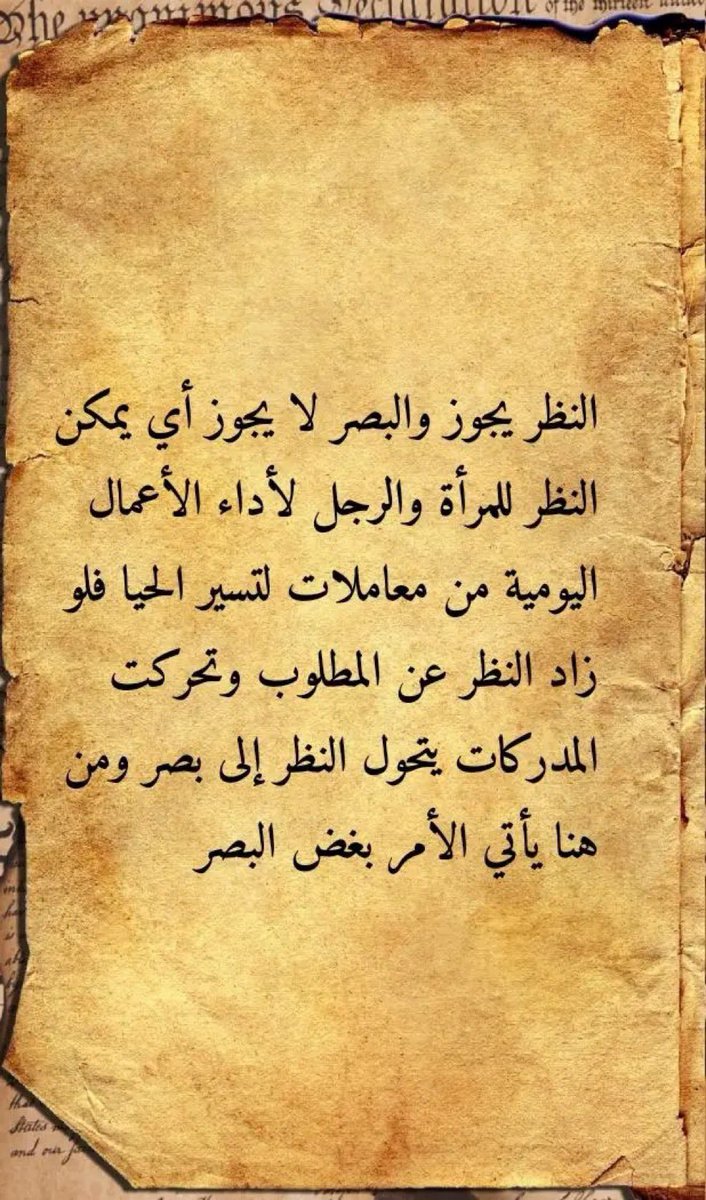 The unanimous Declaration of the thirteen united
النظر يجوز والبصر لا يجوز أي يمكن
النظر للمرأة والرجل لأداء الأعمال
اليومية من معاملات لتسير الحيا فلو
زاد النظر عن المطلوب وتحركت
المدركات يتحول النظر إلى بصر ومن
هنا يأتي الأمر بغض البصر
that
States
and our